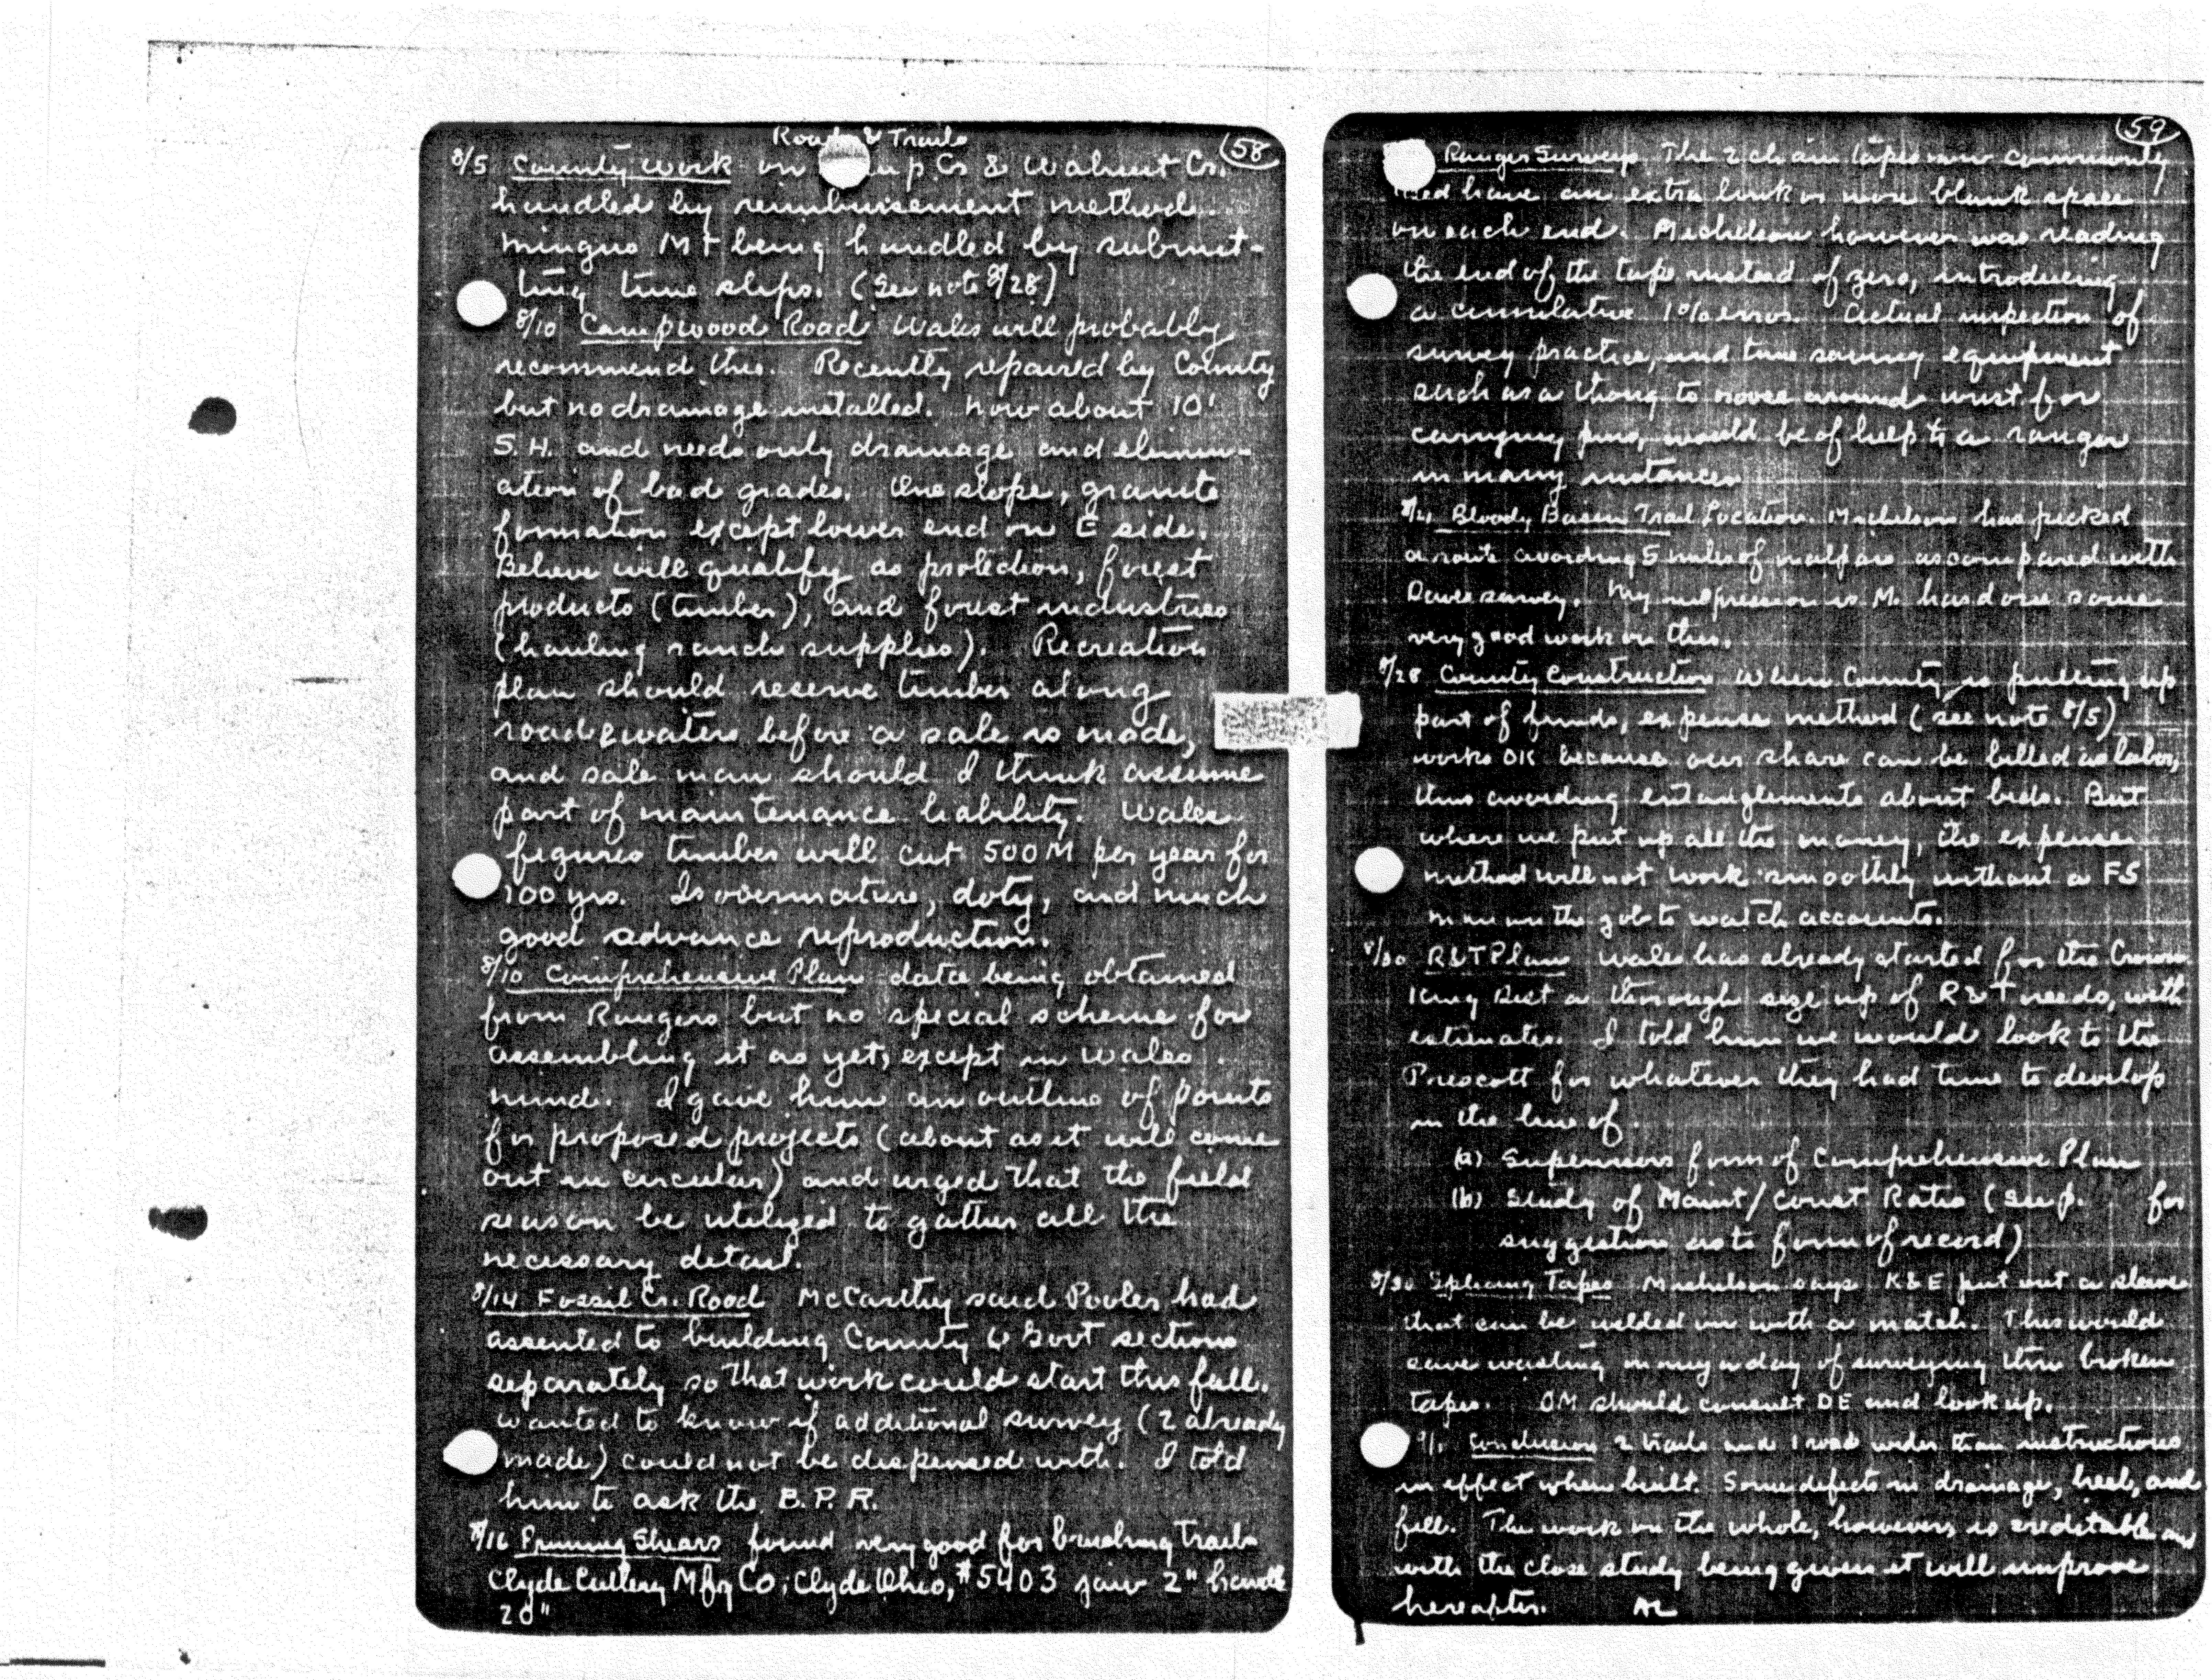 Roads & Trails
58
8/5 County Work on p Cr & Walnut Cr.
handled by reimbursement method.
Mingus Mt being handled by submit-
ting time slips. (See note 8/28)
8/10 Campwood Road Wales will probably
recommend this. Recently repaired by County
but no drainage installed. Now about 10'
S.H. and needs only drainage and elimin-
ation of bad grades. One slope, granite
formation except lower end on E side.
Believe will qualify as protection, forest
products (timber), and forest industries
(hauling ranch supplies). Recreation
plan should reserve timber along
road & waters before a sale is made,
and sale man should I think assume
part of maintenance liability. Wales
figures timber will cut 500 M per year for
100 yrs. Is overmature, doty, and much
good advance reproduction.
8/10 Comprehensive Plan data being obtained
from Rangers but no special scheme for
assembling it as yet, except in Wales
mind. I gave him an outline of points
for proposed projects (about as it will come
out in circular) and urged that the field
season be utilized to gather all the
necessary detail.
8/14 Fossil Cr. Road McCarthy said Pooler had
assented to building County & Govt sections
separately so that work could start this fall.
Wanted to know if additional survey (2 already
made) could not be dispensed with. I told
him to ask the B.P.R.
8/16 Pruning Shears found very good for brushing trails
Clyde Cutlery Mfg Co; Clyde Ohio, #5403 jaw 2" handle
20"
59
Ranger Surveys The 2 chain tapes now commonly
used have an extra link or more blank space
on each end. Michelson however was reading
the end of the tape instead of zero, introducing
a cumulative 1% error. Actual inspection of
survey practice, and time saving equipment
such as a thong to noose around wrist for
carrying pins, would be of help to a ranger
in many instances
8/21 Bloody Basin Trail Location. Michelson has picked
a route avoiding 5 miles of malpais as compared with
survey. My impression is M. has done some
very good work on this.
8/28 County Construction When County is putting up
part of funds, expense method (see note 8/5)
works OK because our share can be billed as labor,
thus avoiding entanglements about bids. But
where we put up all the money, the expense
method will not work smoothly without a FS
man on the job to watch accounts.
8/30 R&T Plans Wales has already started for the Crown
King Dist a thorough size up of R&T needs, with
estimates. I told him we would look to the
Prescott for whatever they had time to develop
in the line of
(a) Supervisors form of Comprehensive Plan
(b) Study of Maint/Const Ratio (Sup. for
suggestion as to form of record)
8/30 Splicing Tapes Michelson says K&E put out a sleeve
that can be welded on with a match. This would
save wasting many a day of surveying thru broken
tapes. OM should consult DE and look up.
9/1 Conclusion 2 trails and 1 road wider than instructions
in effect when built. Some defects in drainage, heel, and
fill. The work on the whole, however, is creditable and
with the close study being given it will improve
hereafter. AL